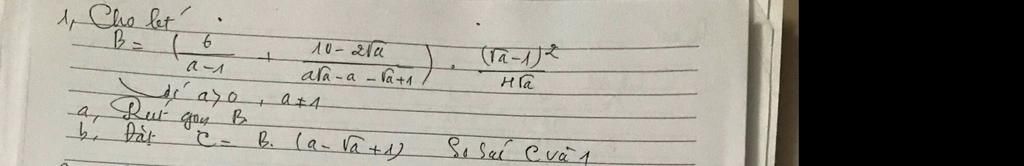 1, Cho bt
B = ( 6/(a-1) + (10-2√a)/(a√a-a-√a+1) ) . (√a-1)²/(4√a)
đk a>0, a≠1
a, Rút gọn B
b, Đặt C = B. (a-√a+1) So sái C và 1